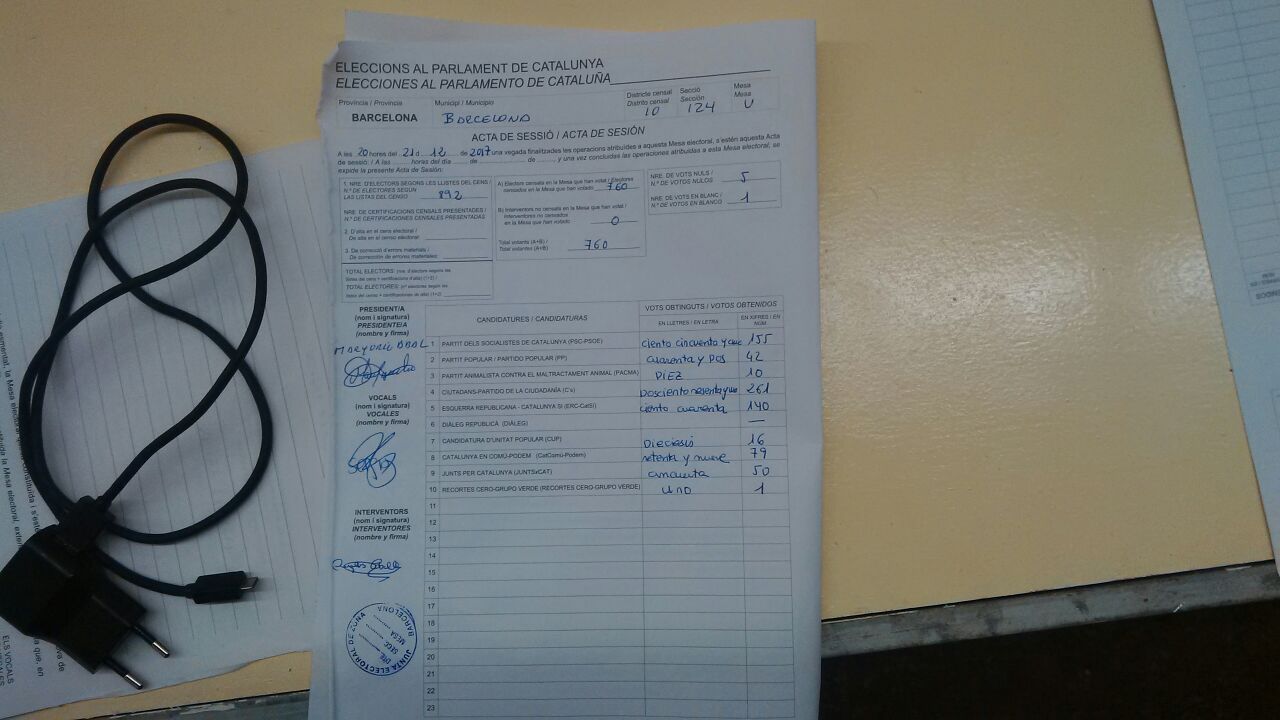 ELECCIONS AL PARLAMENT DE CATALUNYA
ELECCIONES AL PARLAMENTO DE CATALUÑA
Província / Provincia
Municipi / Municipio
Districte censal
Distrito censal
Secció
Sección
Mesa
Mesa
BARCELONA
BARCELONA
10
124
U
ACTA DE SESSIÓ / ACTA DE SESIÓN
A les 20 hores del 21 d 12 de 2017 una vegada finalitzades les operacions atribuïdes a aquesta Mesa electoral, s'estén aquest Acta
de sessió: / A las ...... horas del día ...... de ............ de ......, y una vez concluidas las operaciones atribuidas a esta Mesa electoral, se
expide la presente Acta de Sesión:
1. NRE. D'ELECTORS SEGONS LES LLISTES DEL CENS /
N.º DE ELECTORES SEGÚN
LAS LISTAS DEL CENSO 892
NRE. DE CERTIFICACIONS CENSALS PRESENTADES /
N.º DE CERTIFICACIONES CENSALES PRESENTADAS
2. D'alta en el cens electoral /
De alta en el censo electoral:
3. De correcció d'errors materials /
De corrección de errores materiales:
TOTAL ELECTORS: (nre. d'electors segons les
llistes del cens + certificacions d'alta) (1+2) /
TOTAL ELECTORES: (nº electores según las
listas del censo + certificaciones de alta) (1+2)
A) Electors censats en la Mesa que han votat / Electores
censados en la Mesa que han votado 760
B) Interventors no censats en la Mesa que han votat /
Interventores no censados
en la Mesa que han votado 0
Total votants (A+B) /
Total votantes (A+B) 760
NRE. DE VOTS NULS /
N.º DE VOTOS NULOS 5
NRE. DE VOTS EN BLANC /
N.º DE VOTOS EN BLANCO 1
PRESIDENT/A
(nom i signatura)
PRESIDENTE/A
(nombre y firma)
VOCALS
(nom i signatura)
VOCALES
(nombre y firma)
INTERVENTORS
(nom i signatura)
INTERVENTORES
(nombre y firma)
CANDIDATURES / CANDIDATURAS
VOTS OBTINGUTS / VOTOS OBTENIDOS
EN LLETRES / EN LETRA
EN XIFRES / EN NÚM.
1 PARTIT DELS SOCIALISTES DE CATALUNYA (PSC-PSOE) ciento cincuenta y 155
2 PARTIT POPULAR / PARTIDO POPULAR (PP) cuarenta y DOS 42
3 PARTIT ANIMALISTA CONTRA EL MALTRACTAMENT ANIMAL (PACMA) DIEZ 10
4 CIUTADANS-PARTIDO DE LA CIUDADANÍA (C's) 261
5 ESQUERRA REPUBLICANA - CATALUNYA SÍ (ERC-CatSí) ciento cuarenta 140
6 DIÀLEG REPUBLICÀ (DIÀLEG) —
7 CANDIDATURA D'UNITAT POPULAR (CUP) Dieciseis 16
8 CATALUNYA EN COMÚ-PODEM (CatComú-Podem) setenta y nueve 79
9 JUNTS PER CATALUNYA (JUNTSxCAT) cincuenta 50
10 RECORTES CERO-GRUPO VERDE (RECORTES CERO-GRUPO VERDE) uno 1
11
12
13
14
15
16
17
18
19
20
21
22
23
JUNTA ELECTORAL DE ZONA
BARCELONA
DTE.
SECC.
MESA
ELS VOCALS